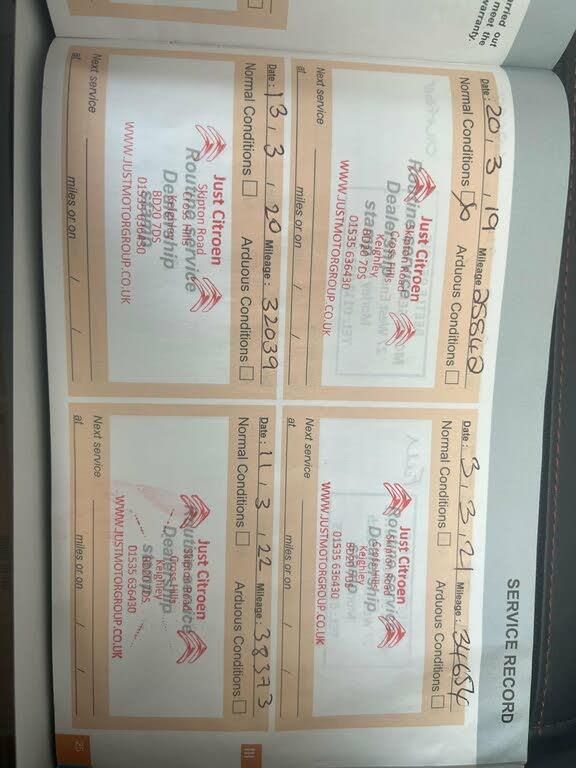 rried out
meet the
warranty.
SERVICE RECORD
Date : 20 , 3 , 19 Mileage : 25840
Normal Conditions Arduous Conditions
Routine Service
Dealership
stamp
Just Citroen
Skipton Road
Cross Hills
Keighley
BD20 7DS
01535 636430
WWW.JUSTMOTORGROUP.CO.UK
Next service
at miles or on / /
Date : 3 , 3 , 21 Mileage : 34654
Normal Conditions Arduous Conditions
Routine Service
Dealership
stamp
Just Citroen
Skipton Road
Cross Hills
Keighley
BD20 7DS
01535 636430
WWW.JUSTMOTORGROUP.CO.UK
Next service
at miles or on / /
Date : 13 , 3 , 20 Mileage : 32039
Normal Conditions Arduous Conditions
Routine Service
Dealership
stamp
Just Citroen
Skipton Road
Cross Hills
Keighley
BD20 7DS
01535 636430
WWW.JUSTMOTORGROUP.CO.UK
Next service
at miles or on / /
Date : 11 , 3 , 22 Mileage : 38373
Normal Conditions Arduous Conditions
Routine Service
Dealership
stamp
Just Citroen
Skipton Road
Cross Hills
Keighley
BD20 7DS
01535 636430
WWW.JUSTMOTORGROUP.CO.UK
Next service
at miles or on / /
III
25